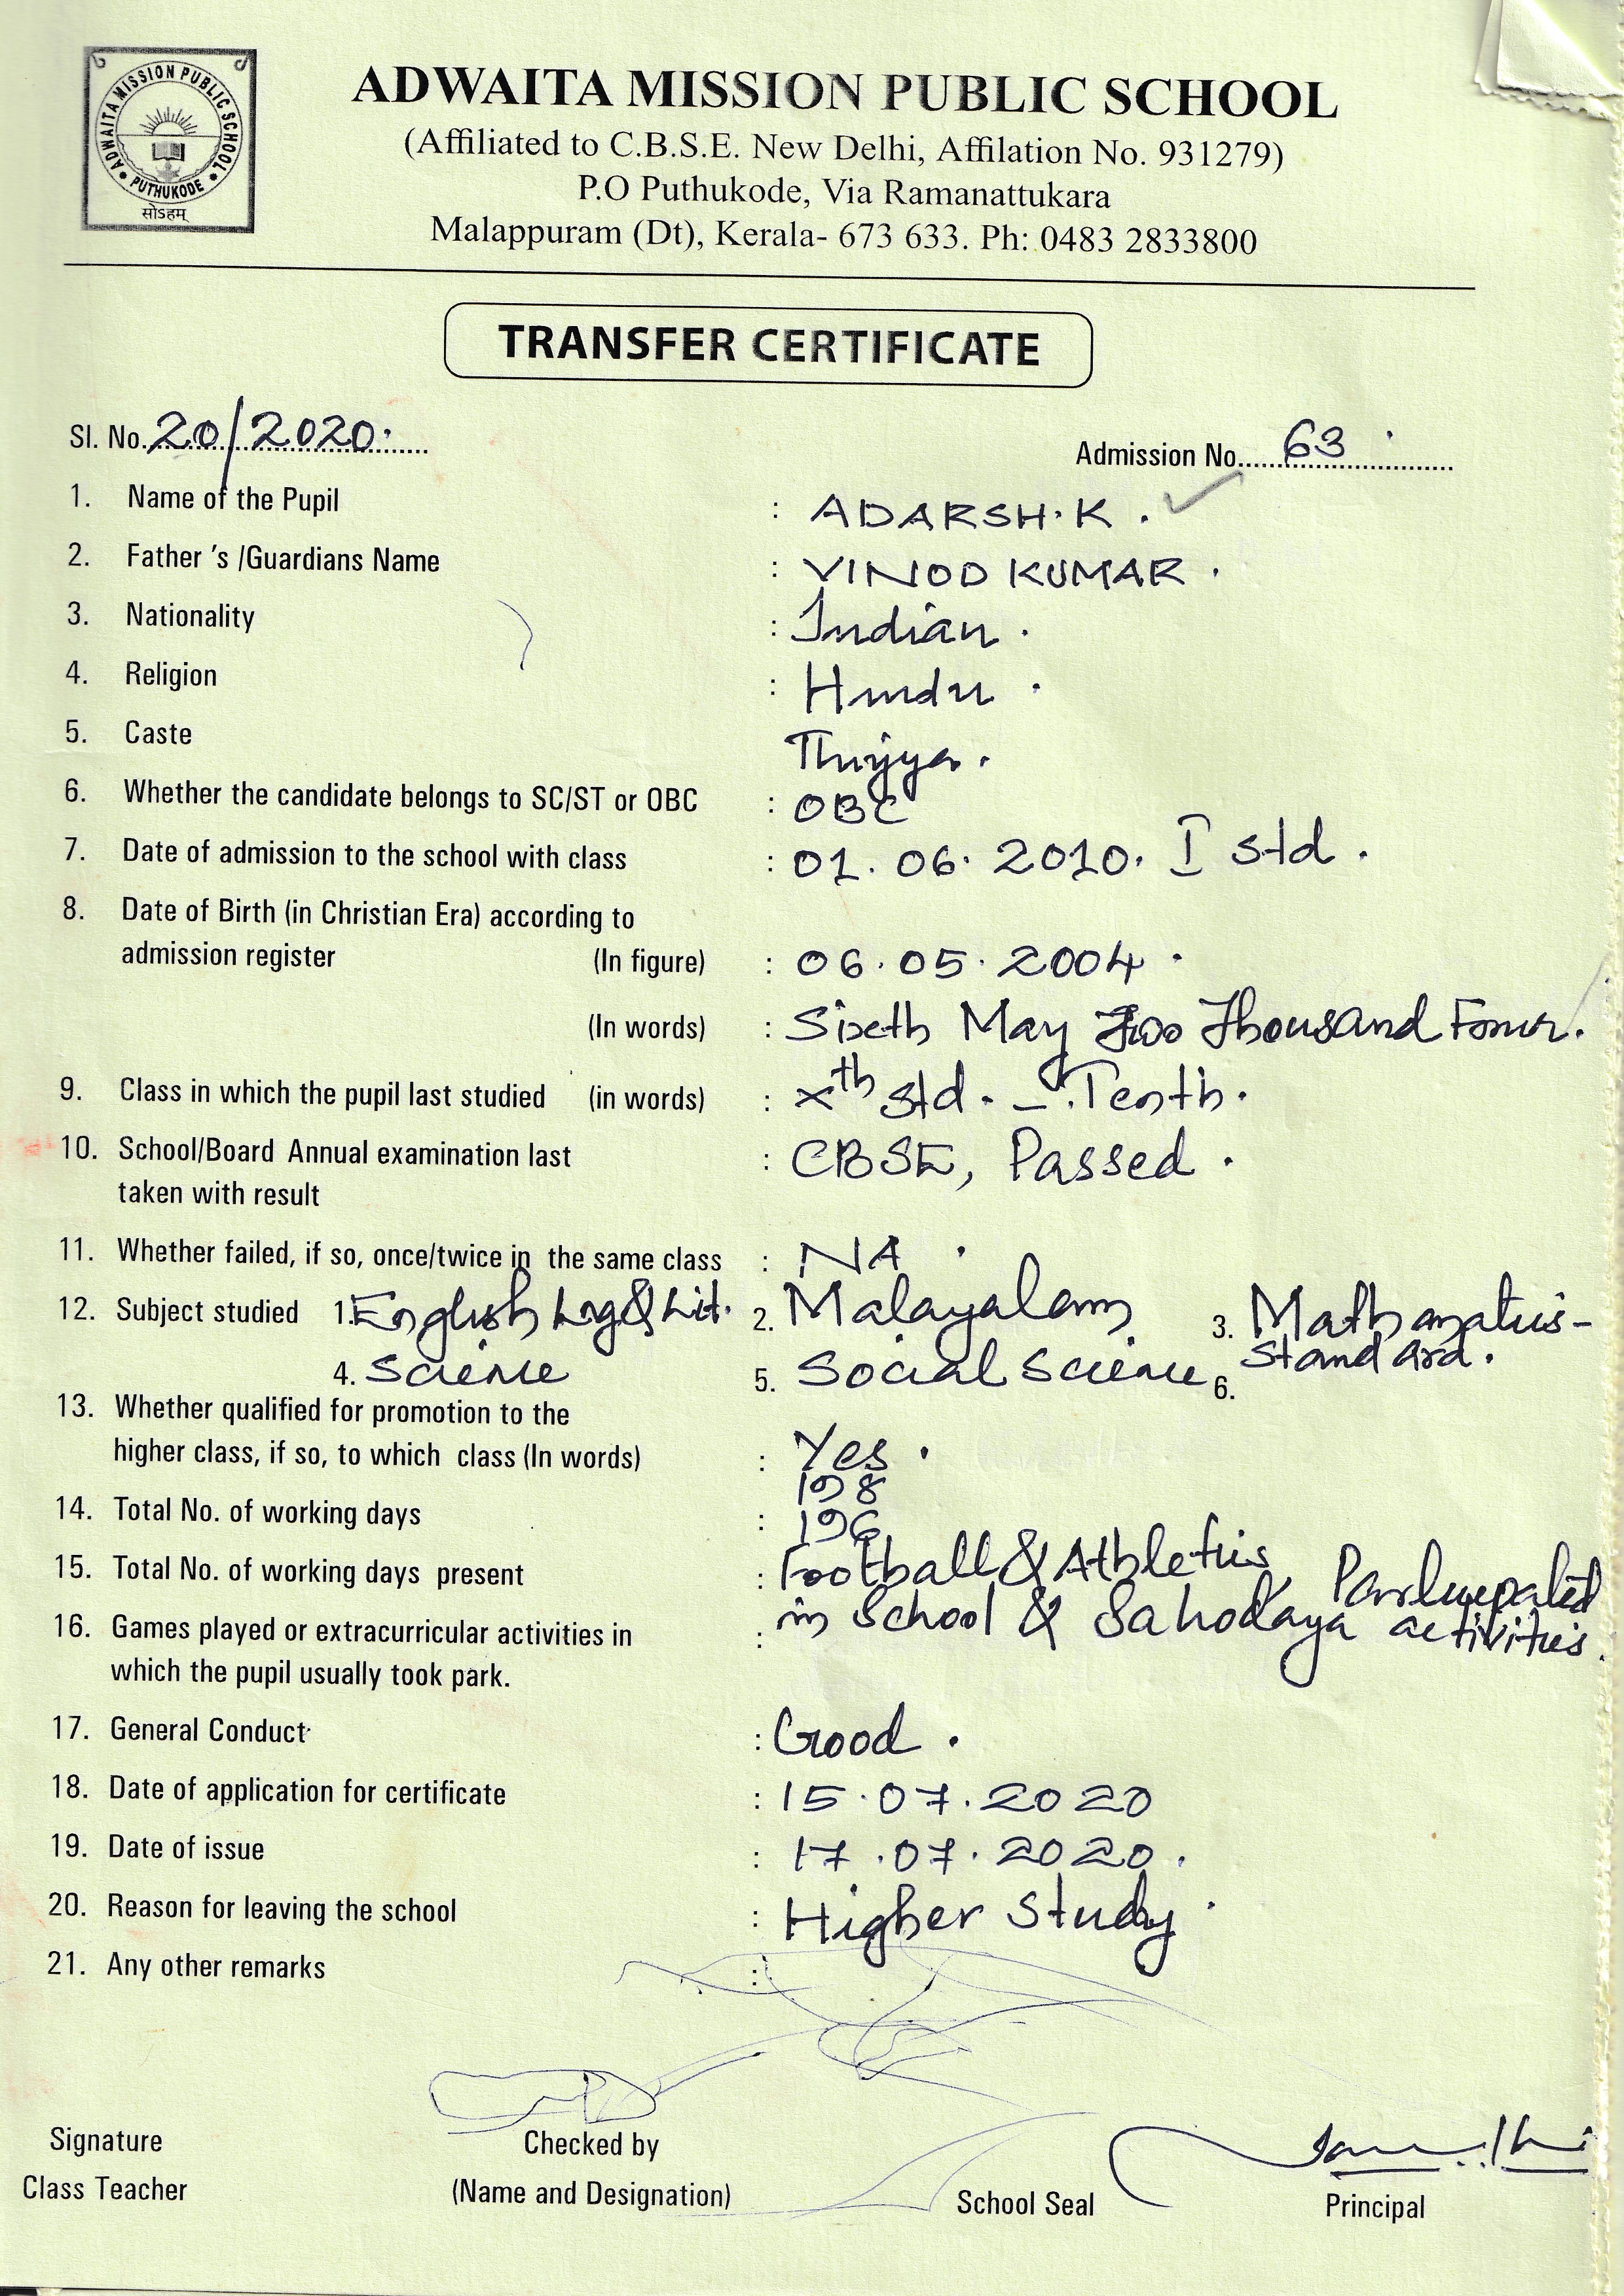 ADWAITA MISSION PUBLIC SCHOOL
PUTHUKODE
सोऽहम्
ADWAITA MISSION PUBLIC SCHOOL
(Affiliated to C.B.S.E. New Delhi, Affilation No. 931279)
P.O Puthukode, Via Ramanattukara
Malappuram (Dt), Kerala- 673 633. Ph: 0483 2833800
TRANSFER CERTIFICATE
Sl. No. 20/2020. Admission No. 63
1. Name of the Pupil : ADARSH.K.
2. Father 's /Guardians Name : VINOD KUMAR.
3. Nationality : Indian.
4. Religion : Hindu.
5. Caste Thiyya.
6. Whether the candidate belongs to SC/ST or OBC : OBC
7. Date of admission to the school with class : 01.06.2010. I std.
8. Date of Birth (in Christian Era) according to
admission register (In figure) : 06.05.2004.
(In words) : Sixth May Two Thousand Four.
9. Class in which the pupil last studied (in words) : Xth std. - Tenth.
10. School/Board Annual examination last : CBSE, Passed.
taken with result
11. Whether failed, if so, once/twice in the same class : NA.
12. Subject studied 1. English Lng & Lit. 2. Malayalam 3. Mathematics-
Standard.
4. Science 5. Social Science 6.
13. Whether qualified for promotion to the
higher class, if so, to which class (In words) : Yes.
198
14. Total No. of working days : 196
15. Total No. of working days present : Football & Athletics Participated
16. Games played or extracurricular activities in : in School & Sahodaya activities.
which the pupil usually took park.
17. General Conduct : Good.
18. Date of application for certificate : 15.07.2020
19. Date of issue : 17.07.2020.
20. Reason for leaving the school : Higher Study.
21. Any other remarks :
Signature Checked by
Class Teacher (Name and Designation) School Seal Principal